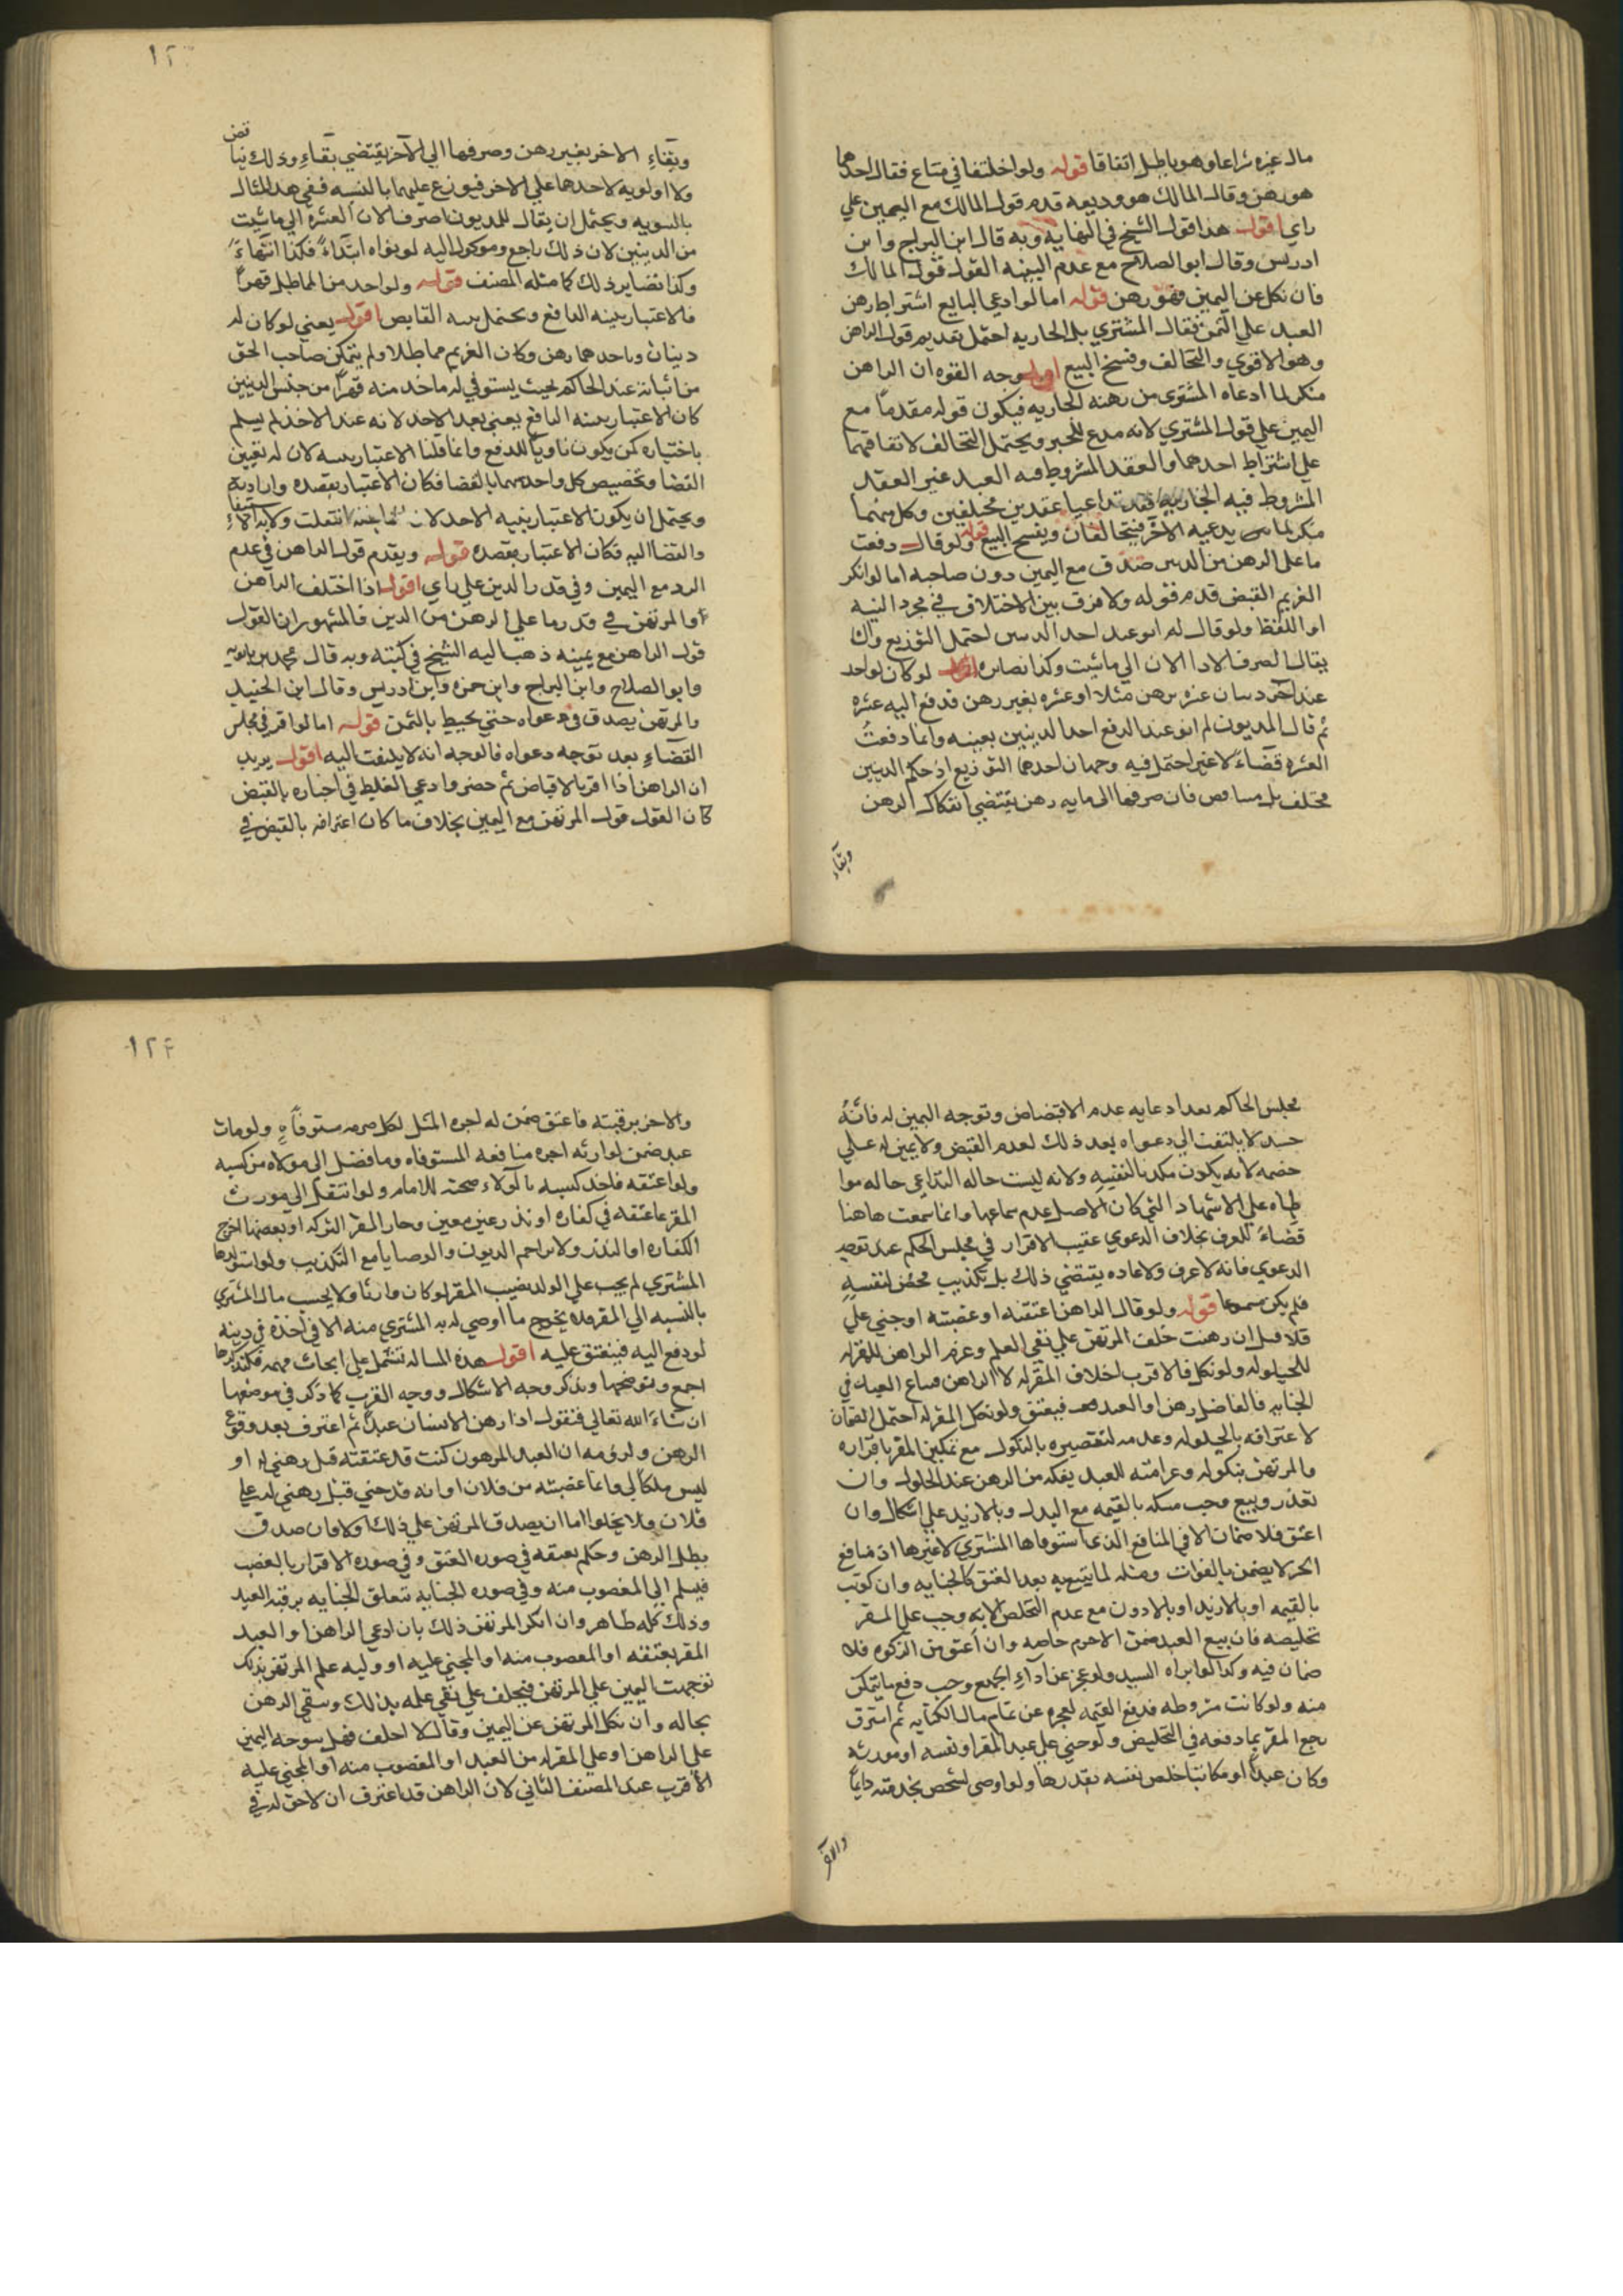 مال غيره شراعا وهو باطل اتفاقا قوله ولو اختلفا في متاع فقال احدهما
هو رهن وقال المالك هو وديعه قدم قول المالك مع اليمين علي
راي اقول هذا قول الشيخ في النهايه وبه قال ابن البراج وابن
ادريس وقال ابو الصلاح مع عدم البينه القول قول المالك
فان نكل عن اليمين فهو رهن قوله اما لو ادعي البايع اشتراط رهن
العبد علي الثمن فقال المشتري بل الجاريه احتمل تقديم قول الراهن
وهو الاقوي والتحالف وفسخ البيع اقول وجه القوه ان الراهن
منكر لما ادعاه المشتري من رهنه الجاريه فيكون قوله مقدما مع
اليمين علي قول المشتري لانه مدع للجبر ويحتمل التحالف لاتفاقهما
علي اشتراط احدهما والعقد المشروط فيه العبد غير العقد
المشروط فيه الجاريه فقد تداعيا عقدين مختلفين وكل منهما
منكر لما يدعيه الاخر فيتحالفان ويفسخ البيع قوله ولو قال دفعت
ما علي الرهن من الدين صدق مع اليمين دون صاحبه اما لو انكر
الغريم القبض قدم قوله ولا فرق بين الاختلاف في مجرد النيه
او اللفظ ولو قال لم انو عند احد الدينين احتمل التوزيع وان
يقال له اصرف الاداء الان الي ما شئت وكذا نظايره اقول لو كان لواحد
عند اخر دينان عشره برهن مثلا وعشره بغير رهن فدفع اليه عشره
ثم قال المديون لم انو عند الدفع احد الدينين بعينه وانما دفعت
العشره قضاء لا غير احتمل فيه وجهان احدهما التوزيع اذ حكم الدينين
مختلف بل فان صرفها الي ما به رهن يقتضي انفكاك الرهن
وبقاء
وبقاء الاخر بغير رهن وصرفها الي الاخر يقتضي بقاء وذلك تنا
قض
ولا اولويه لاحدهما علي الاخر فيوزع عليهما بالنسبه ففي هذا المثال
بالسويه ويحتمل ان يقال للمديون اصرف الان العشره الي ما شئت
من الدينين لان ذلك راجع وموكول اليه لو نواه ابتداء فكذا انتهاء
وكذا نضاير ذلك كما مثله المصنف قوله ولو اخذ من المماطل قهرا
فالاعتبار بنيه الدافع ويحتمل بنيه القابض اقول يعني لو كان له
دينان وباحدهما رهن وكان الغريم مماطلا ولم يتمكن صاحب الحق
من اثباته عند الحاكم بحيث يستوفي له فاخذ منه قهرا من جنس الدينين
كان الاعتبار بنيه الدافع يعني بعد الاخذ لانه عند الاخذ لم يسلم
باختياره كي يكون ناويا للدفع وانما قلنا الاعتبار بنيته لان له تعيين
القضا وتخصيص كل واحد منهما بالقضا فكان الاعتبار بقصده وارادته
ويحتمل ان يكون الاعتبار بنيه الاخذ لان انتقلت ولايه
والقضا اليه فكان الاعتبار بقصده قوله ويقدم قول الراهن في عدم
الرد مع اليمين وفي قدر الدين علي راي اقول اذا اختلف الراهن
والمرتهن في قدر ما علي الرهن من الدين فالمشهور ان القول
قول الراهن مع يمينه ذهب اليه الشيخ في كتبه وبه قال محمد بن بابويه
وابو الصلاح وابن البراج وابن حمزه وابن ادريس وقال ابن الجنيد
والمرتهن يصدق في دعواه حتي يحيط بالثمن قوله اما لو اقر في مجلس
القضاء بعد توجه دعواه فالوجه انه لا يلتفت اليه اقول يريد
ان الراهن اذا اقر بالاقباض ثم حضر وادعي الغلط في اخباره بالقبض
كان القول قول المرتهن مع اليمين بخلاف ما كان اعترافه بالقبض في
١٢٤
مجلس الحاكم بعد ادعايه عدم الاقباض وتوجه اليمين له فانه
حينئذ لا يلتفت الي دعواه بعد ذلك لعدم القبض ولا يمين له علي
خصمه لانه يكون مكذبا لنفسه ولانه ليست حاله التداعي حاله موا
طاه علي الاشهاد التي كان الاصل عدم سماعها وانما سمعت هاهنا
قضاء للعرف بخلاف الدعوي عقيب الاقرار في مجلس الحكم عند
الدعوي فانه لا عرف ولا عاده يقتضي ذلك بل تكذيب محض لنفسه
فلم يكن مسموعا قوله ولو قال الراهن اعتقته او غصبته او جني علي
فلان قبل ان رهنت حلف المرتهن علي نفي العلم وغرم الراهن للمقر له
للحيلوله ولو نكل فالاقرب احلاف المقر له لا الراهن فيباع العبد في
الجنايه فالفاضل رهن او العبد فيعتق ولو نكل المقر له احتمل الضمان
لاعترافه بالحيلوله وعدمه لتقصيره بالنكول مع تمكين المقر باقراره
والمرتهن بنكوله وغرامته للعبد يفكه من الرهن عند الحلول وان
تعذر وبيع وجب فكه بالقيمه مع البذل وبالازيد علي اشكال وان
اعتق فلا ضمان الا في المنافع التي استوفاها المشتري لا غيرها اذ منافع
الحر لا يضمن بالفوات ومثله لما يتبع به بعد العتق كالجنايه وان كوتب
بالقيمه او بالازيد او بالادون مع عدم التخلص الا به وجب علي المقر
تخليصه فان بيع العبد ضمن الاجره خاصه وان اعتق من الزكوه فلا
ضمان فيه وكذا لو ابراه السيد ولو عجز عن اداء الجميع وجب دفع ما يتمكن
منه ولو كانت مشروطه فدفع القيمه لعجزه عن تمام مال الكتابه ثم استرق
رجع المقر بما دفعه في التخليص ولو جني علي عبد المقر او نفسه او مورثه
وكان عبدا او مكاتبا خلص نفسه بقدرها ولو اوصي لشخص بخدمته دايما
والاخر
والاخر برقبته فاعتق ضمن له اجره المثل لكل مستوفاه ولو مات
عبد ضمن لوارثه اجره منافعه المستوفاه وما فضل الي مولاه من كسبه
ولو اعتقه فاخذ كسبه بالولاء صحته للامام ولو انتقل الي مورث
المقر ما عتقه في كفاره او نذر غير معين وحاز المقر التركه او بعضها اخرج
الكفاره او النذر ولا يزاحم الديون والوصايا مع التكذيب ولو استولدها
المشتري لم يجب علي الولد نصيب المقر لو كان وارثا ولا يحسب مال المشتري
بالنسبه الي المقر فلا يخرج ما اوصي له به المشتري منه الا في اخذه في دينه
لو دفع اليه فينعتق عليه اقول هذه المساله تشتمل علي ابحاث مهمه فلنذكرها
اجمع ونوضحها ونذكر وجه الاشكال ووجه القرب كما ذكر في موضعها
ان شاء الله تعالي فنقول اذا رهن الانسان عبدا ثم اعترف بعد وقوع
الرهن ولزومه ان العبد المرهون كنت قد عتقته قبل رهني له او
ليس ملكا لي وانما غصبته من فلان او انه قد جني قبل رهني له علي
فلان فلا يخلوا اما ان يصدق المرتهن علي ذلك او لا فان صدق
بطل الرهن وحكم بعتقه في صوره العتق وفي صوره الاقرار بالغصب
فيسلم الي المغصوب منه وفي صوره الجنايه تتعلق الجنايه برقبه العبد
وذلك كله ظاهر وان انكر المرتهن ذلك بان ادعي الراهن او العبد
المقر بعتقه او المغصوب منه او المجني عليه او وليه علم المرتهن بذلك
توجهت اليمين علي المرتهن فيحلف علي نفي علمه بذلك وبقي الرهن
بحاله وان نكل المرتهن عن اليمين وقال لا احلف فهل يتوجه اليمين
علي الراهن او علي المقر له من العبد او المغصوب منه او المجني عليه
الاقرب عند المصنف الثاني لان الراهن قد اعترف ان لا حق له في